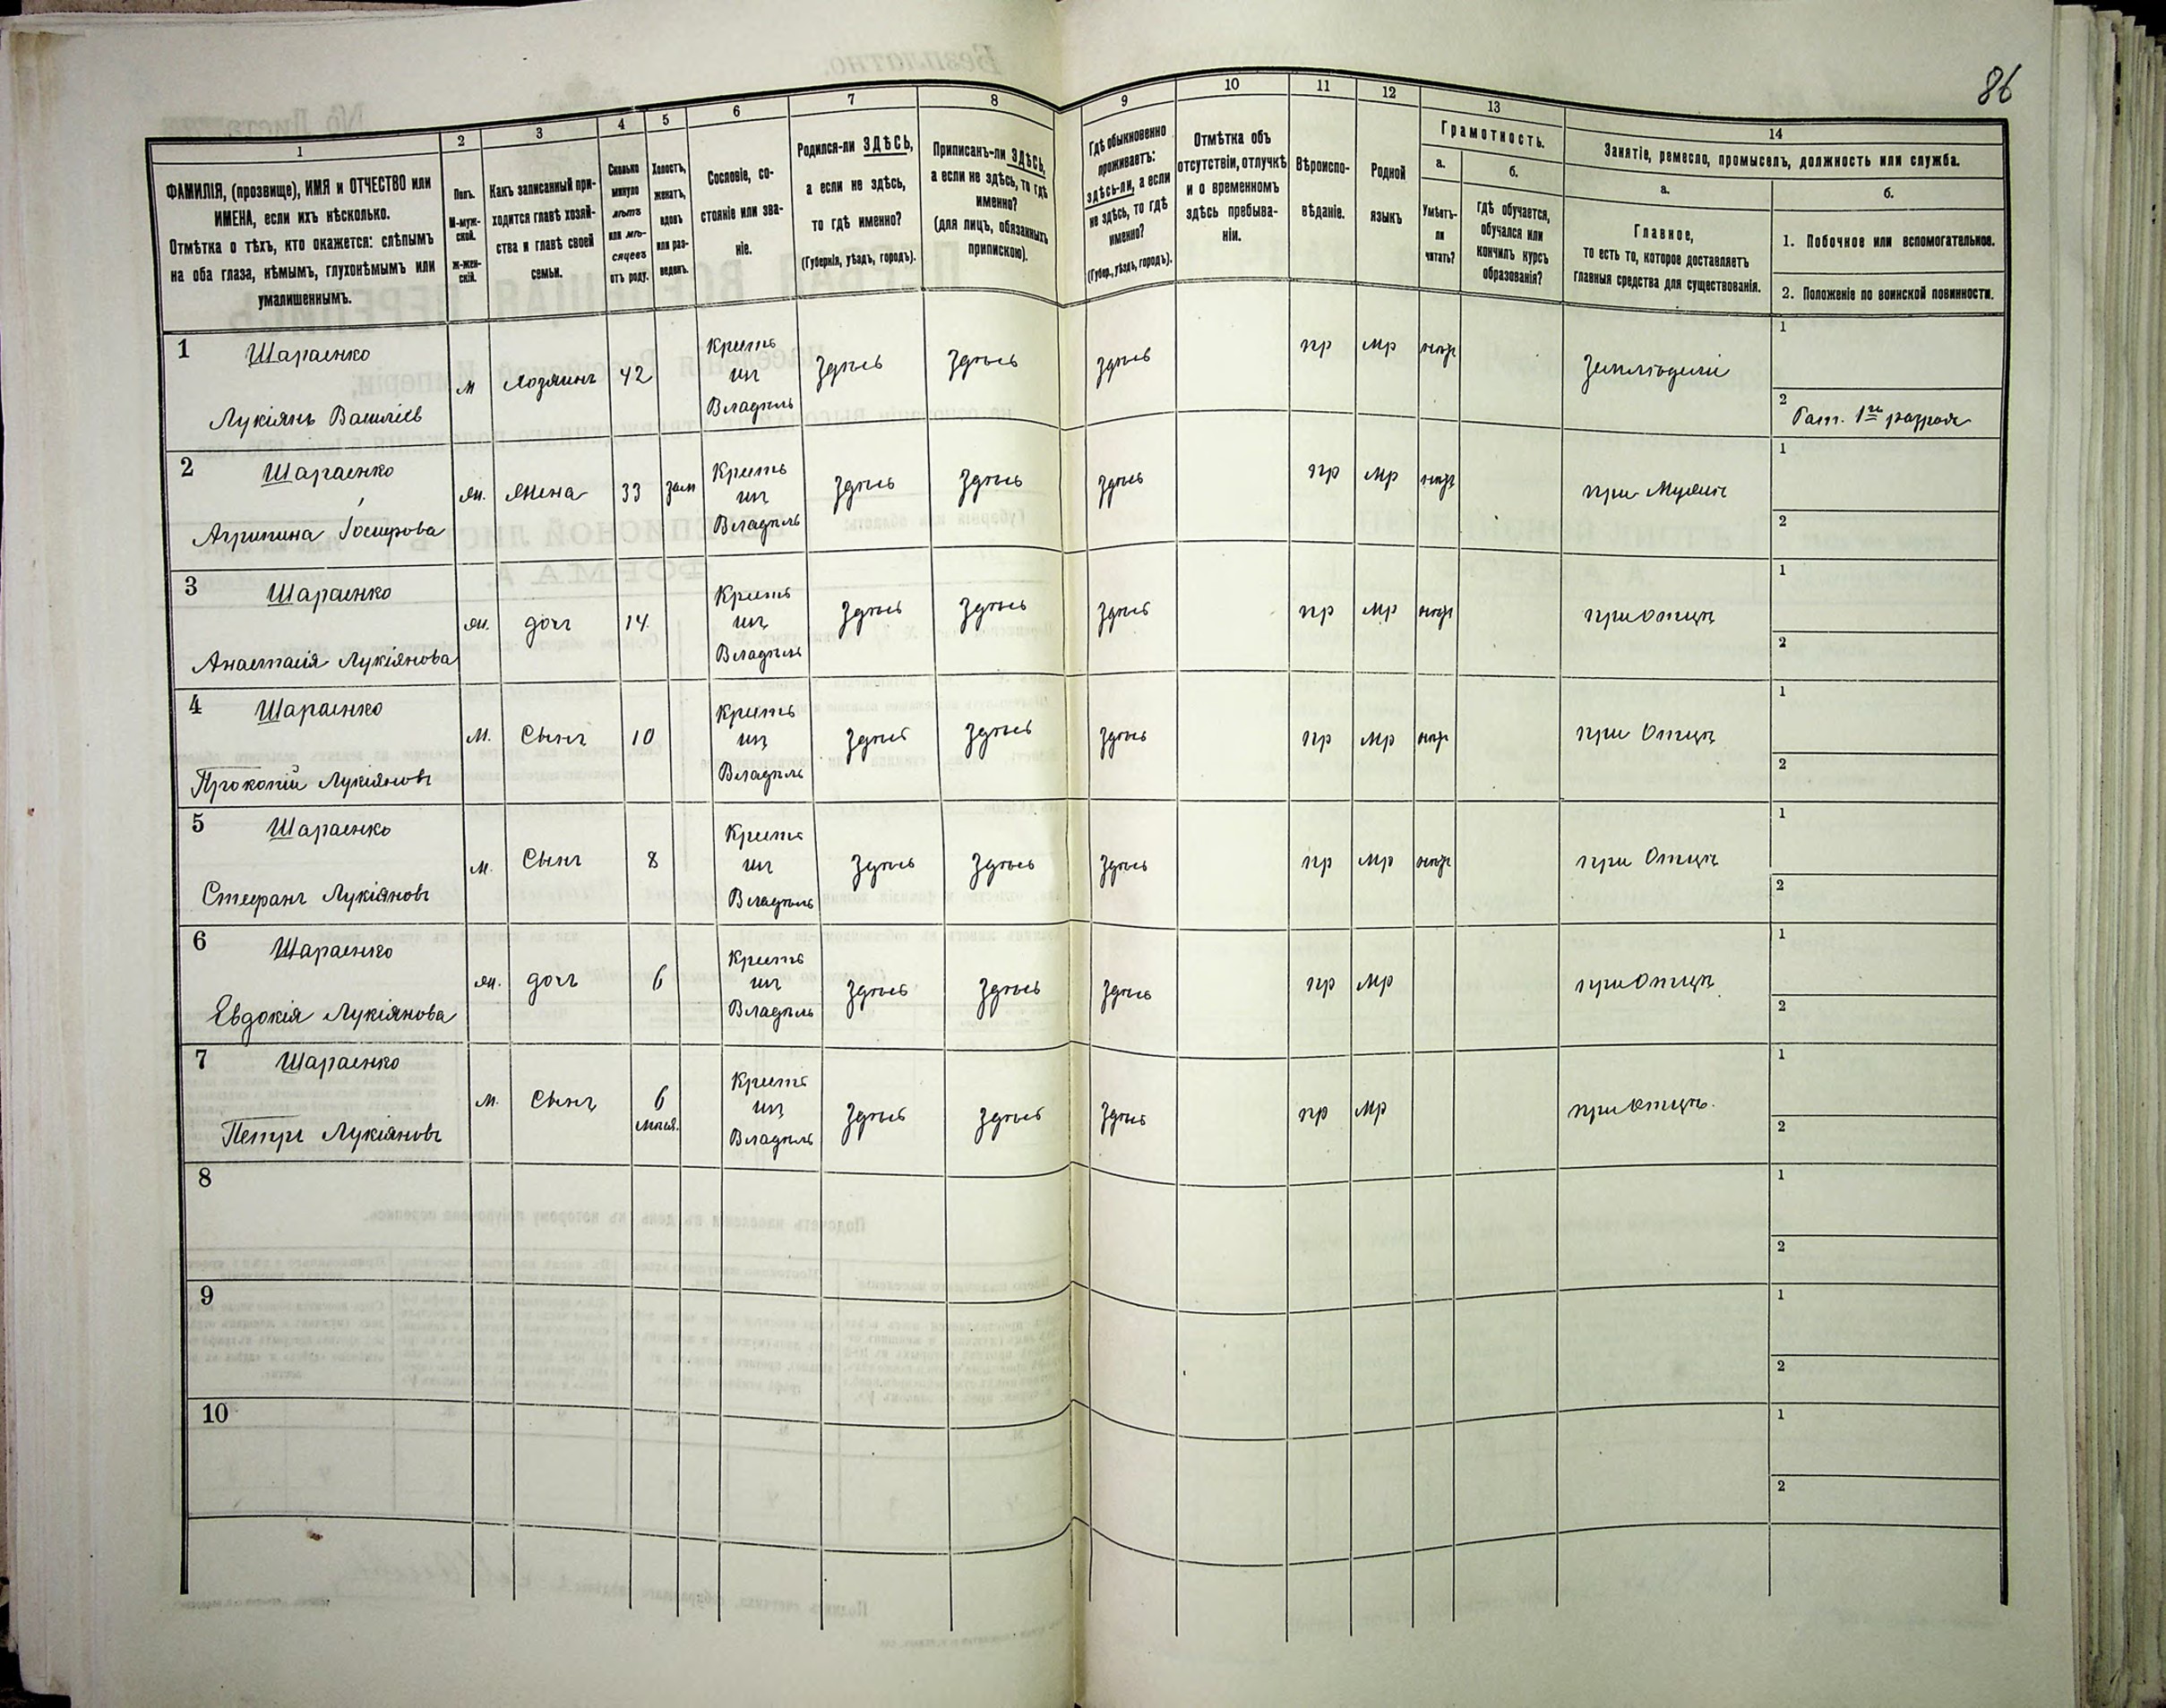 86
1 2 3 4 5 6 7 8 9 10 11 12 13 14
ФАМИЛІЯ, (прозвище), ИМЯ и ОТЧЕСТВО или
ИМЕНА, если ихъ нѣсколько.
Отмѣтка о тѣхъ, кто окажется: слѣпымъ
на оба глаза, нѣмымъ, глухонѣмымъ или
умалишеннымъ.
Полъ.
М-муж-
ской.
Ж-жен-
скій.
Какъ записанный при-
ходится главѣ хозяй-
ства и главѣ своей
семьи.
Сколько
минуло
лѣтъ
или мѣ-
сяцевъ
отъ роду.
Холостъ,
женатъ,
вдовъ
или раз-
веденъ.
Сословіе, со-
стояніе или зва-
ніе.
Родился-ли ЗДѢСЬ,
а если не здѣсь,
то гдѣ именно?
(Губернія, уѣздъ, городъ).
Приписанъ-ли ЗДѢСЬ,
а если не здѣсь, то гдѣ
именно?
(для лицъ, обязанныхъ
припискою).
Гдѣ обыкновенно
проживаетъ:
здѣсь-ли, а если
не здѣсь, то гдѣ
именно?
(Губер., уѣздъ, городъ).
Отмѣтка объ
отсутствіи, отлучкѣ
и о временномъ
здѣсь пребыва-
ніи.
Вѣроиспо-
вѣданіе.
Родной
языкъ
Грамотность.
а.
Умѣетъ-
ли
читать?
б.
гдѣ обучается,
обучался или
кончилъ курсъ
образованія?
Занятіе, ремесло, промыселъ, должность или служба.
а.
Главное,
то есть то, которое доставляетъ
главныя средства для существованія.
б.
1. Побочное или вспомогательное.
2. Положеніе по воинской повинности.
1 Шараенко
Лукіянъ Василіев
м Хозяинъ 42
Крестъ
изъ
Владѣль
здѣсь здѣсь здѣсь пр мр негр Земледѣліе
1
2 Рат. 1го разряда
2 Шараенко
Агрипина
ж. жена 33 зам
Крестъ
изъ
Владѣль
здѣсь здѣсь здѣсь пр мр негр при Мужѣ
1
2
3 Шараенко
Анастасія Лукіянова
ж. дочъ 14
Крестъ
изъ
Владѣль
здѣсь здѣсь здѣсь пр мр негр при Отцѣ
1
2
4 Шараенко
Прокопій Лукіяновъ
м. Сынъ 10
Крестъ
изъ
Владѣль
здѣсь здѣсь здѣсь пр мр негр при Отцѣ
1
2
5 Шараенко
Стефанъ Лукіяновъ
м. Сынъ 8
Крестъ
изъ
Владѣль
здѣсь здѣсь здѣсь пр мр негр при Отцѣ
1
2
6 Шараенко
Евдокія Лукіянова
ж. дочъ 6
Крестъ
изъ
Владѣль
здѣсь здѣсь здѣсь пр мр при Отцѣ
1
2
7 Шараенко
Петръ Лукіяновъ
м. Сынъ 6
мѣся.
Крестъ
изъ
Владѣль
здѣсь здѣсь здѣсь пр мр при Отцѣ.
1
2
8
1
2
9
1
2
10
1
2